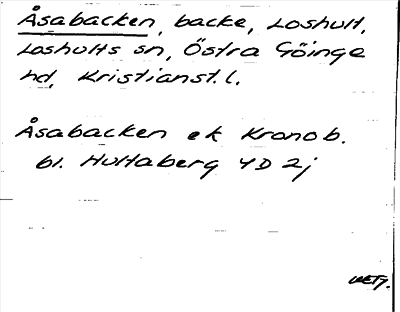 Åsabacken, backe, Loshult,
Loshults sn, Östra Göinge
hd, Kristianst. l.
Åsabacken ek Kronob.
bl. Hultaberg 4D 2j